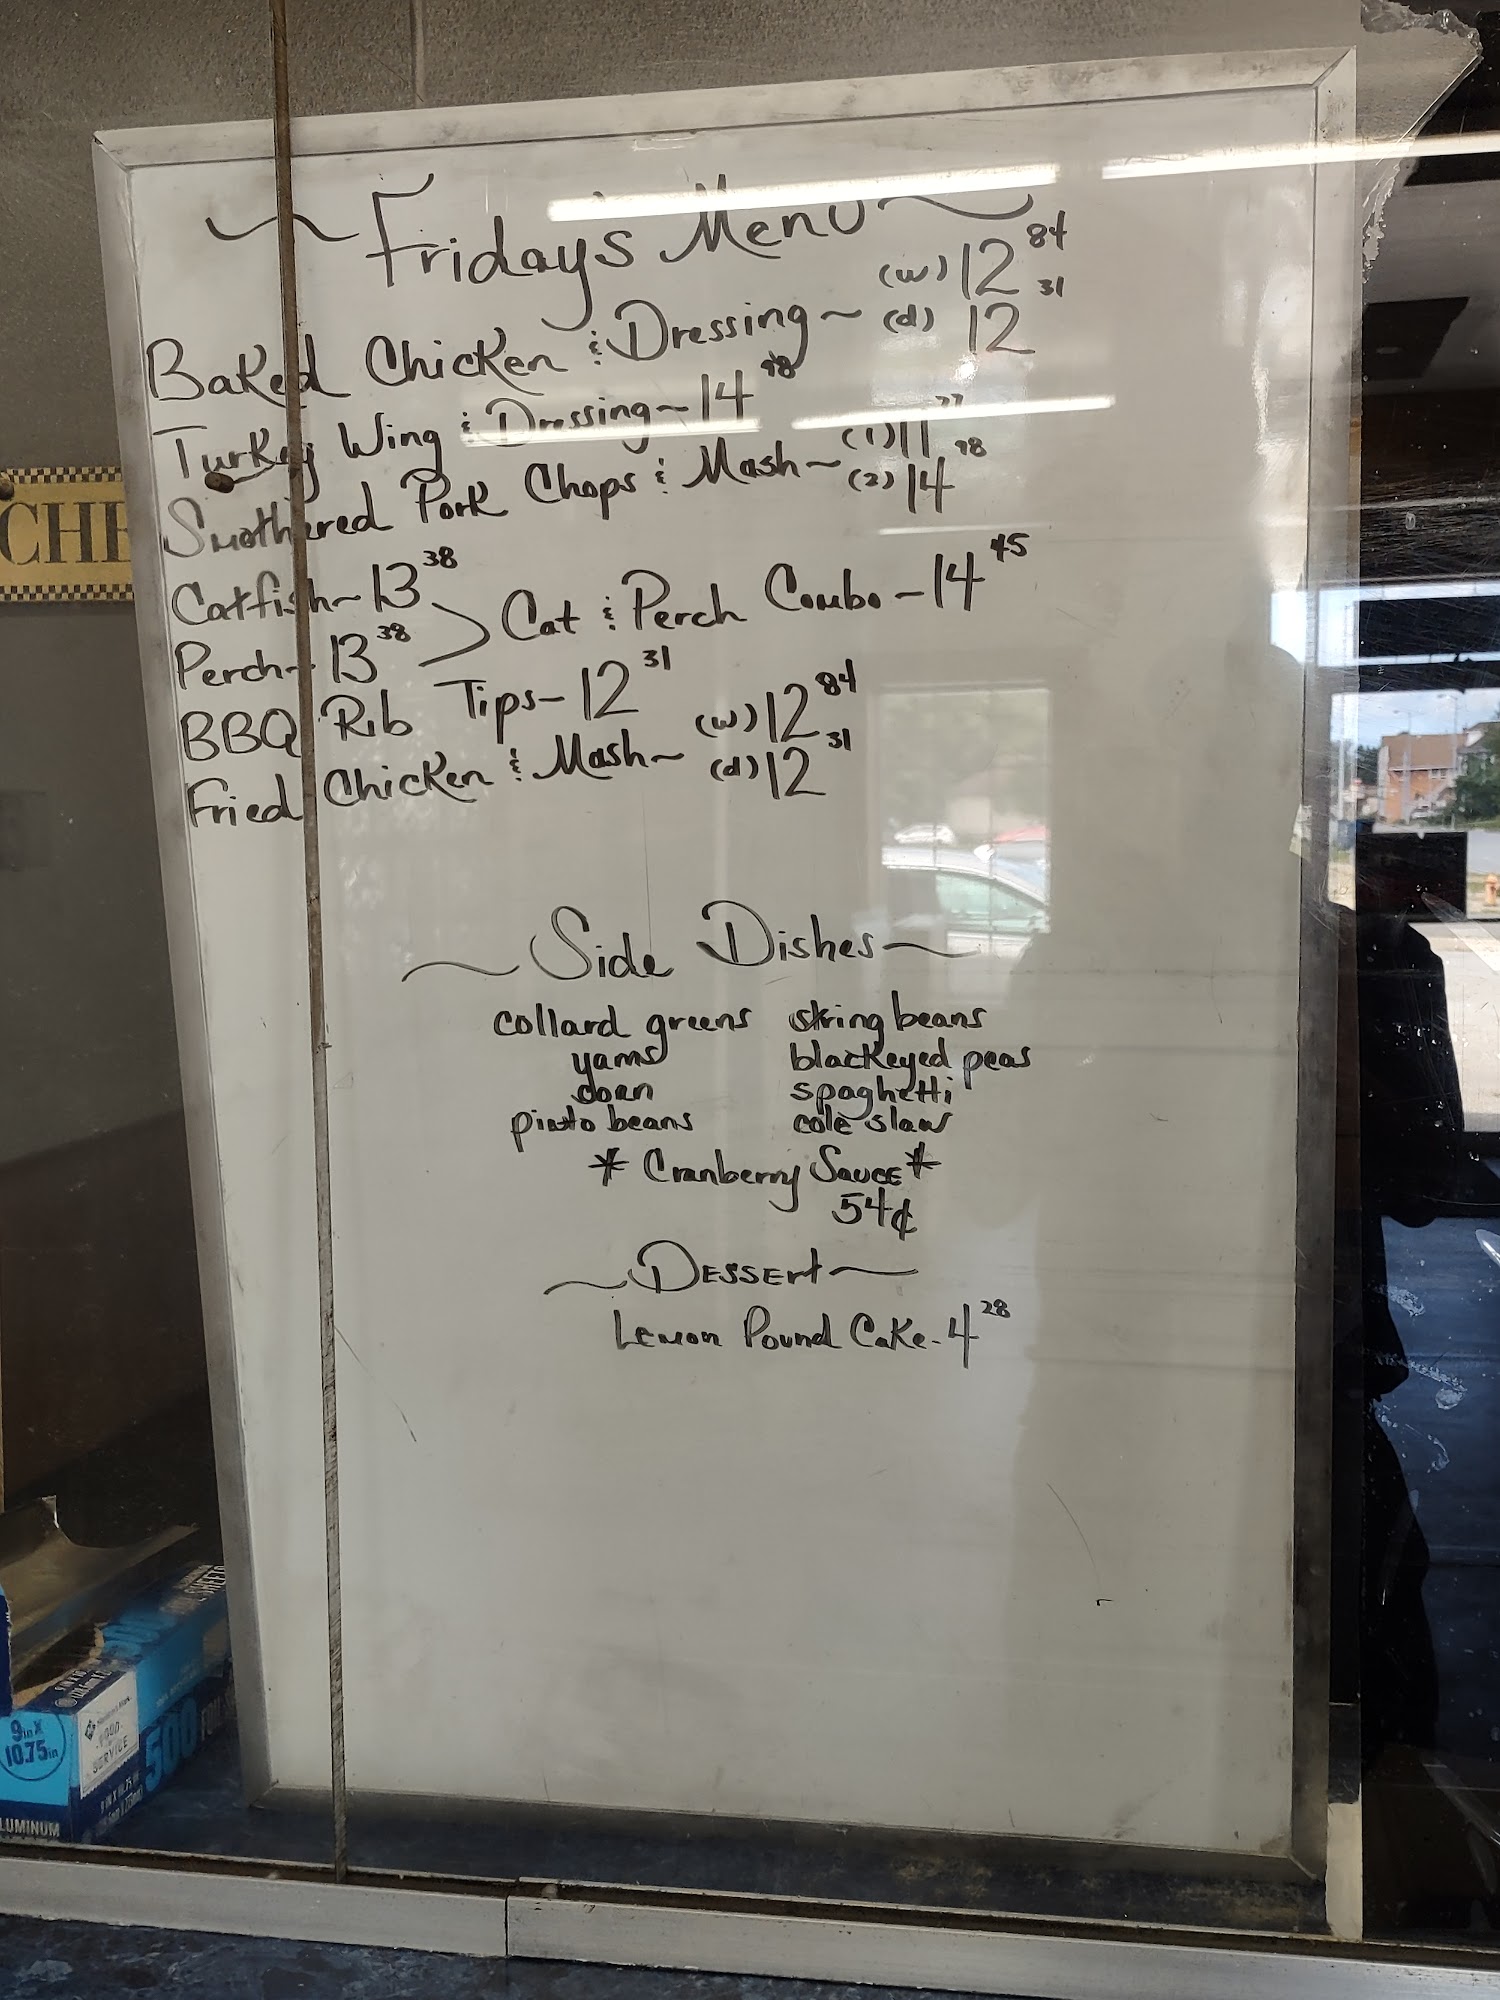 ~ Friday's Menu ~
Baked Chicken & Dressing ~ (w) 12 84
(d) 12 31
Turkey Wing & Dressing ~ 14 98
Smothered Pork Chops & Mash ~ (1) 11 77
(2) 14 98
Catfish ~ 13 38
Perch ~ 13 38
Cat & Perch Combo - 14 45
BBQ Rib Tips - 12 31
Fried Chicken & Mash ~ (w) 12 84
(d) 12 31
~ Side Dishes ~
collard greens string beans
yams blackeyed peas
corn spaghetti
pinto beans cole slaw
* Cranberry Sauce *
54¢
~ Dessert ~
Lemon Pound Cake - 4 28
CHE
SHEETS
9in X
10.75in
FOOD
SERVICE
500
LUMINUM